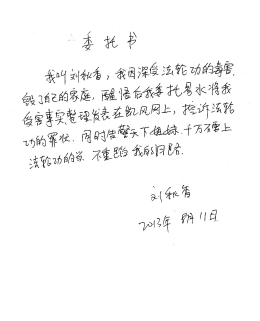 委托书
我叫刘秋香，我因深受法轮功的毒害，
毁了自己的家庭，醒悟后我委托易水将我
受害事实整理发表在凯风网上，控诉法轮
功的罪状，同时告诫天下姐妹，千万不要上
法轮功的当 不重蹈我的旧路.
刘秋香
2013年 8月11日